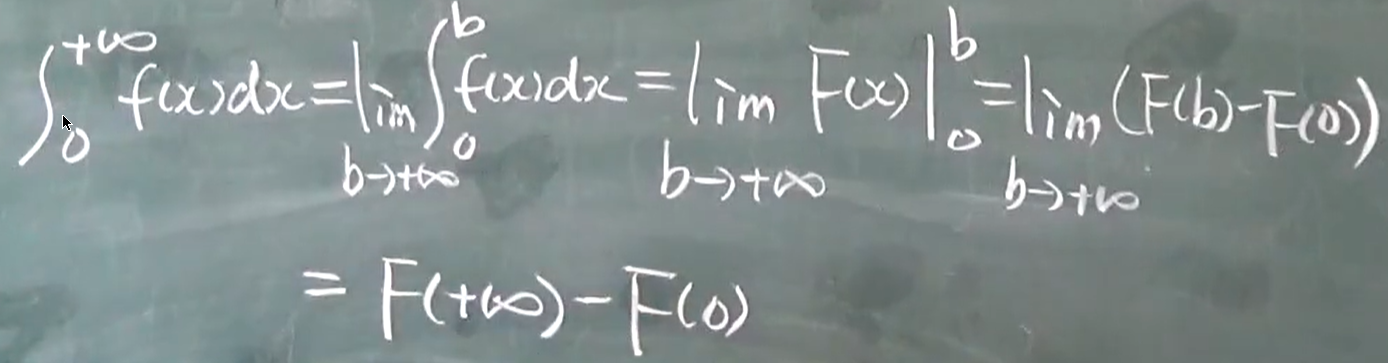 ∫₀^{+∞} f(x)dx = lim_{b→+∞} ∫₀^b f(x)dx = lim_{b→+∞} F(x)|₀^b = lim_{b→+∞} (F(b)-F(0))
= F(+∞) - F(0)